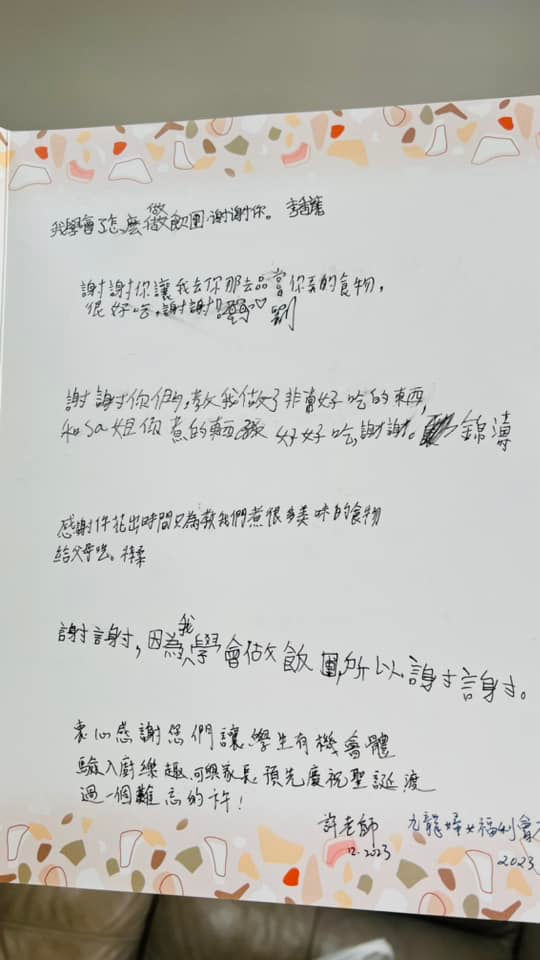 我學會了怎麼做飯團,謝謝你。
謝謝你讓我去你那去品嘗你弄的食物,
很好吃,謝謝! ♡ 劉
謝謝你們,教我做了非常好吃的東西,
和Sa姐 煮的東西 好好吃,謝謝。 錦濤
感謝 花出時間只為教我們煮很多美味的食物
給父母吃。
謝謝,因為我學會做飯團,所以謝謝。
衷心感謝您們讓學生有機會體
驗入廚樂趣,可與家長預先慶祝聖誕,渡
過一個難忘的 !
許老師 九龍婦女福利會
12.2023 2023